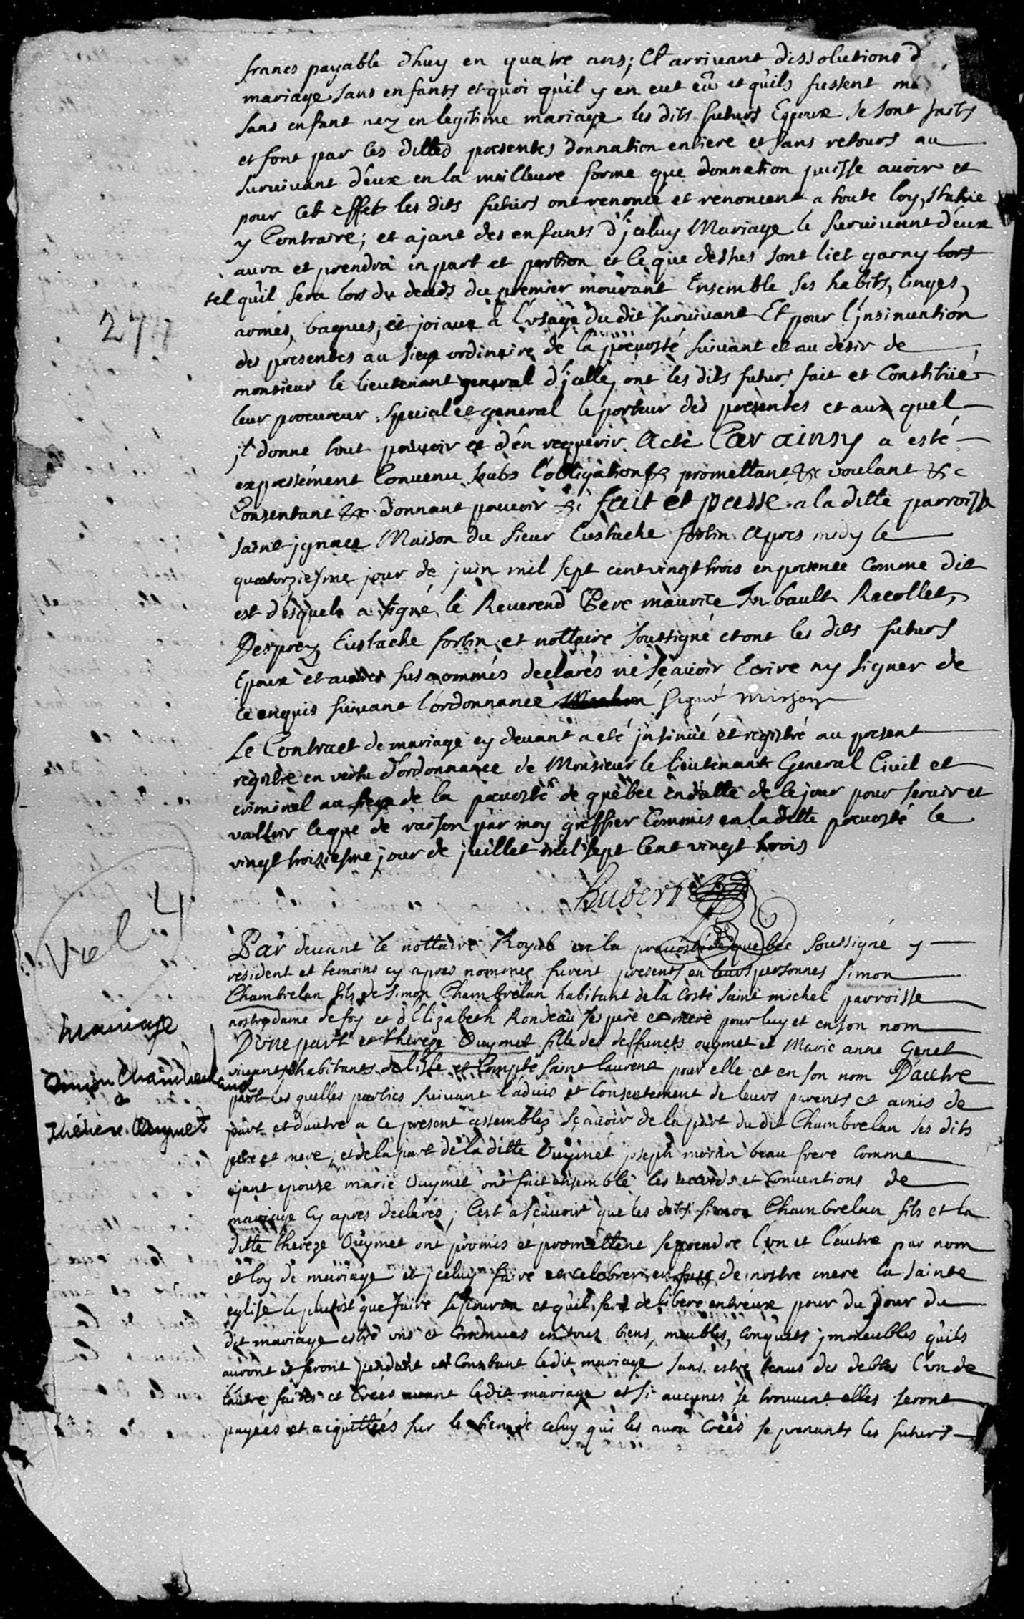 francs payable d'huy en quatre ans; Et arrivant dissolutions d
mariage sans enfants et quoi qu'il y en eut eû et qu'ils fussent mo
sans enfant nez en legitime mariage les dits futurs Epoux se sont faits
et font par ces dittes presentes donnation entiere et sans retours au
survivant d'eux en la meilleure forme que donnation puisse avoir et
pour cet effet les dits futurs ont renoncé et renoncent a toute loy,
y Contraire; et ajant des enfants d'jceluy Mariage le survivant d'eux
aura et prendra in part et portion et ce que dessus sont liet garny lors
tel qu'il sera lors du deceds du premier mourant Ensemble ses habits, linges,
armes, bagues, et joiaux a l'usage du dit survivant Et pour l'jnsinuation
27
des presentes au siege ordinaire de la prevosté suivant et au desir de
monsieur le lieutenant general d'jcelle, ont les dits futurs fait et Constitué
leur procureur special et general le porteur des presentes et aux quel
jl donne tout pouvoir et d'en requerir Acte Car ainsy a esté
expressément Convenu soubs l'obligation &c promettant &c voulant &c
Consentant &c donnant pouvoir &c fait et passé a la ditte parroisse
saint jgnace Maison du sieur Eustache fortin apres midy le
quatorziesme jour de juin mil sept cent vingt trois en presence Comme dit
est desquels a signé le Reverend Pere maurice Imbault Recollet,
Desprez, Eustache fortin et nottaire soussigné et ont les dits futurs
Epoux et autres susnommés declarés ne sçavoir Ecrire ny signer de
ce enquis suivant l'ordonnance signé
Le Contract de mariage cy devant a eté jnsinué et registré au present
registre en vertu d'ordonnance de Monsieur le lieutenant General Civil et
criminel au siege de la prevosté de québec en datte de ce jour pour servir et
valloir ce que de raison par moy greffier Commis en la ditte prevosté le
vingt troiziesme jour de juillet mil sept Cent vingt trois
Hubert
4
Vel
Par devant le nottaire Royal en la prevosté de quebec soussigné y
resident et temoins cy apres nommez furent presents en leurs personnes simon
Chambrelan fils de simon Chambrelan habitant de la Coste saint michel parroisse
nostre dame de foy et d'Elizabeth Rondeau ses pere et mere pour luy et en son nom
mariage
Simon Chambreland
&
Therese Ouymet
D'une part et therege Ouymet fille des deffuncts ouymet et Marie anne Genet
vivants habitants de l'isle et Compté saint laurent pour elle et en son nom D'autre
part les quelles parties suivant l'advis et Consentement de leurs parents et amis de
part et d'autre a ce present assemblés sçavoir de la part du dit Chambrelan ses dits
pere et mere, et de la part de la ditte Ouymet joseph morin beau frere Comme
ajant epousé marie Ouymet ont fait ensemble les accords et Conventions de
mariage Cy apres declarés; C'est a scavoir que les dits simon Chambrelan fils et la
ditte therege Ouymet ont promis et promettent se prendre l'un et l'autre par nom
et loy de mariage et jceluy faire et celebrer en face de nostre mere la sainte
eglise le plustost que faire se pourra et qu'il sera deliberé entreux pour du jour du
dit mariage estre uns et Communs en tous biens, meubles, conquets jmmeubles qu'ils
auront et feront pendant et Constant ledit mariage sans estre tenus des debtes l'un de
l'autre faites et Créés avant ledit mariage et si aucunes se trouvent elles seront
payées et acquittées sur le bien de celuy qui les aura Créés se prenants les futurs